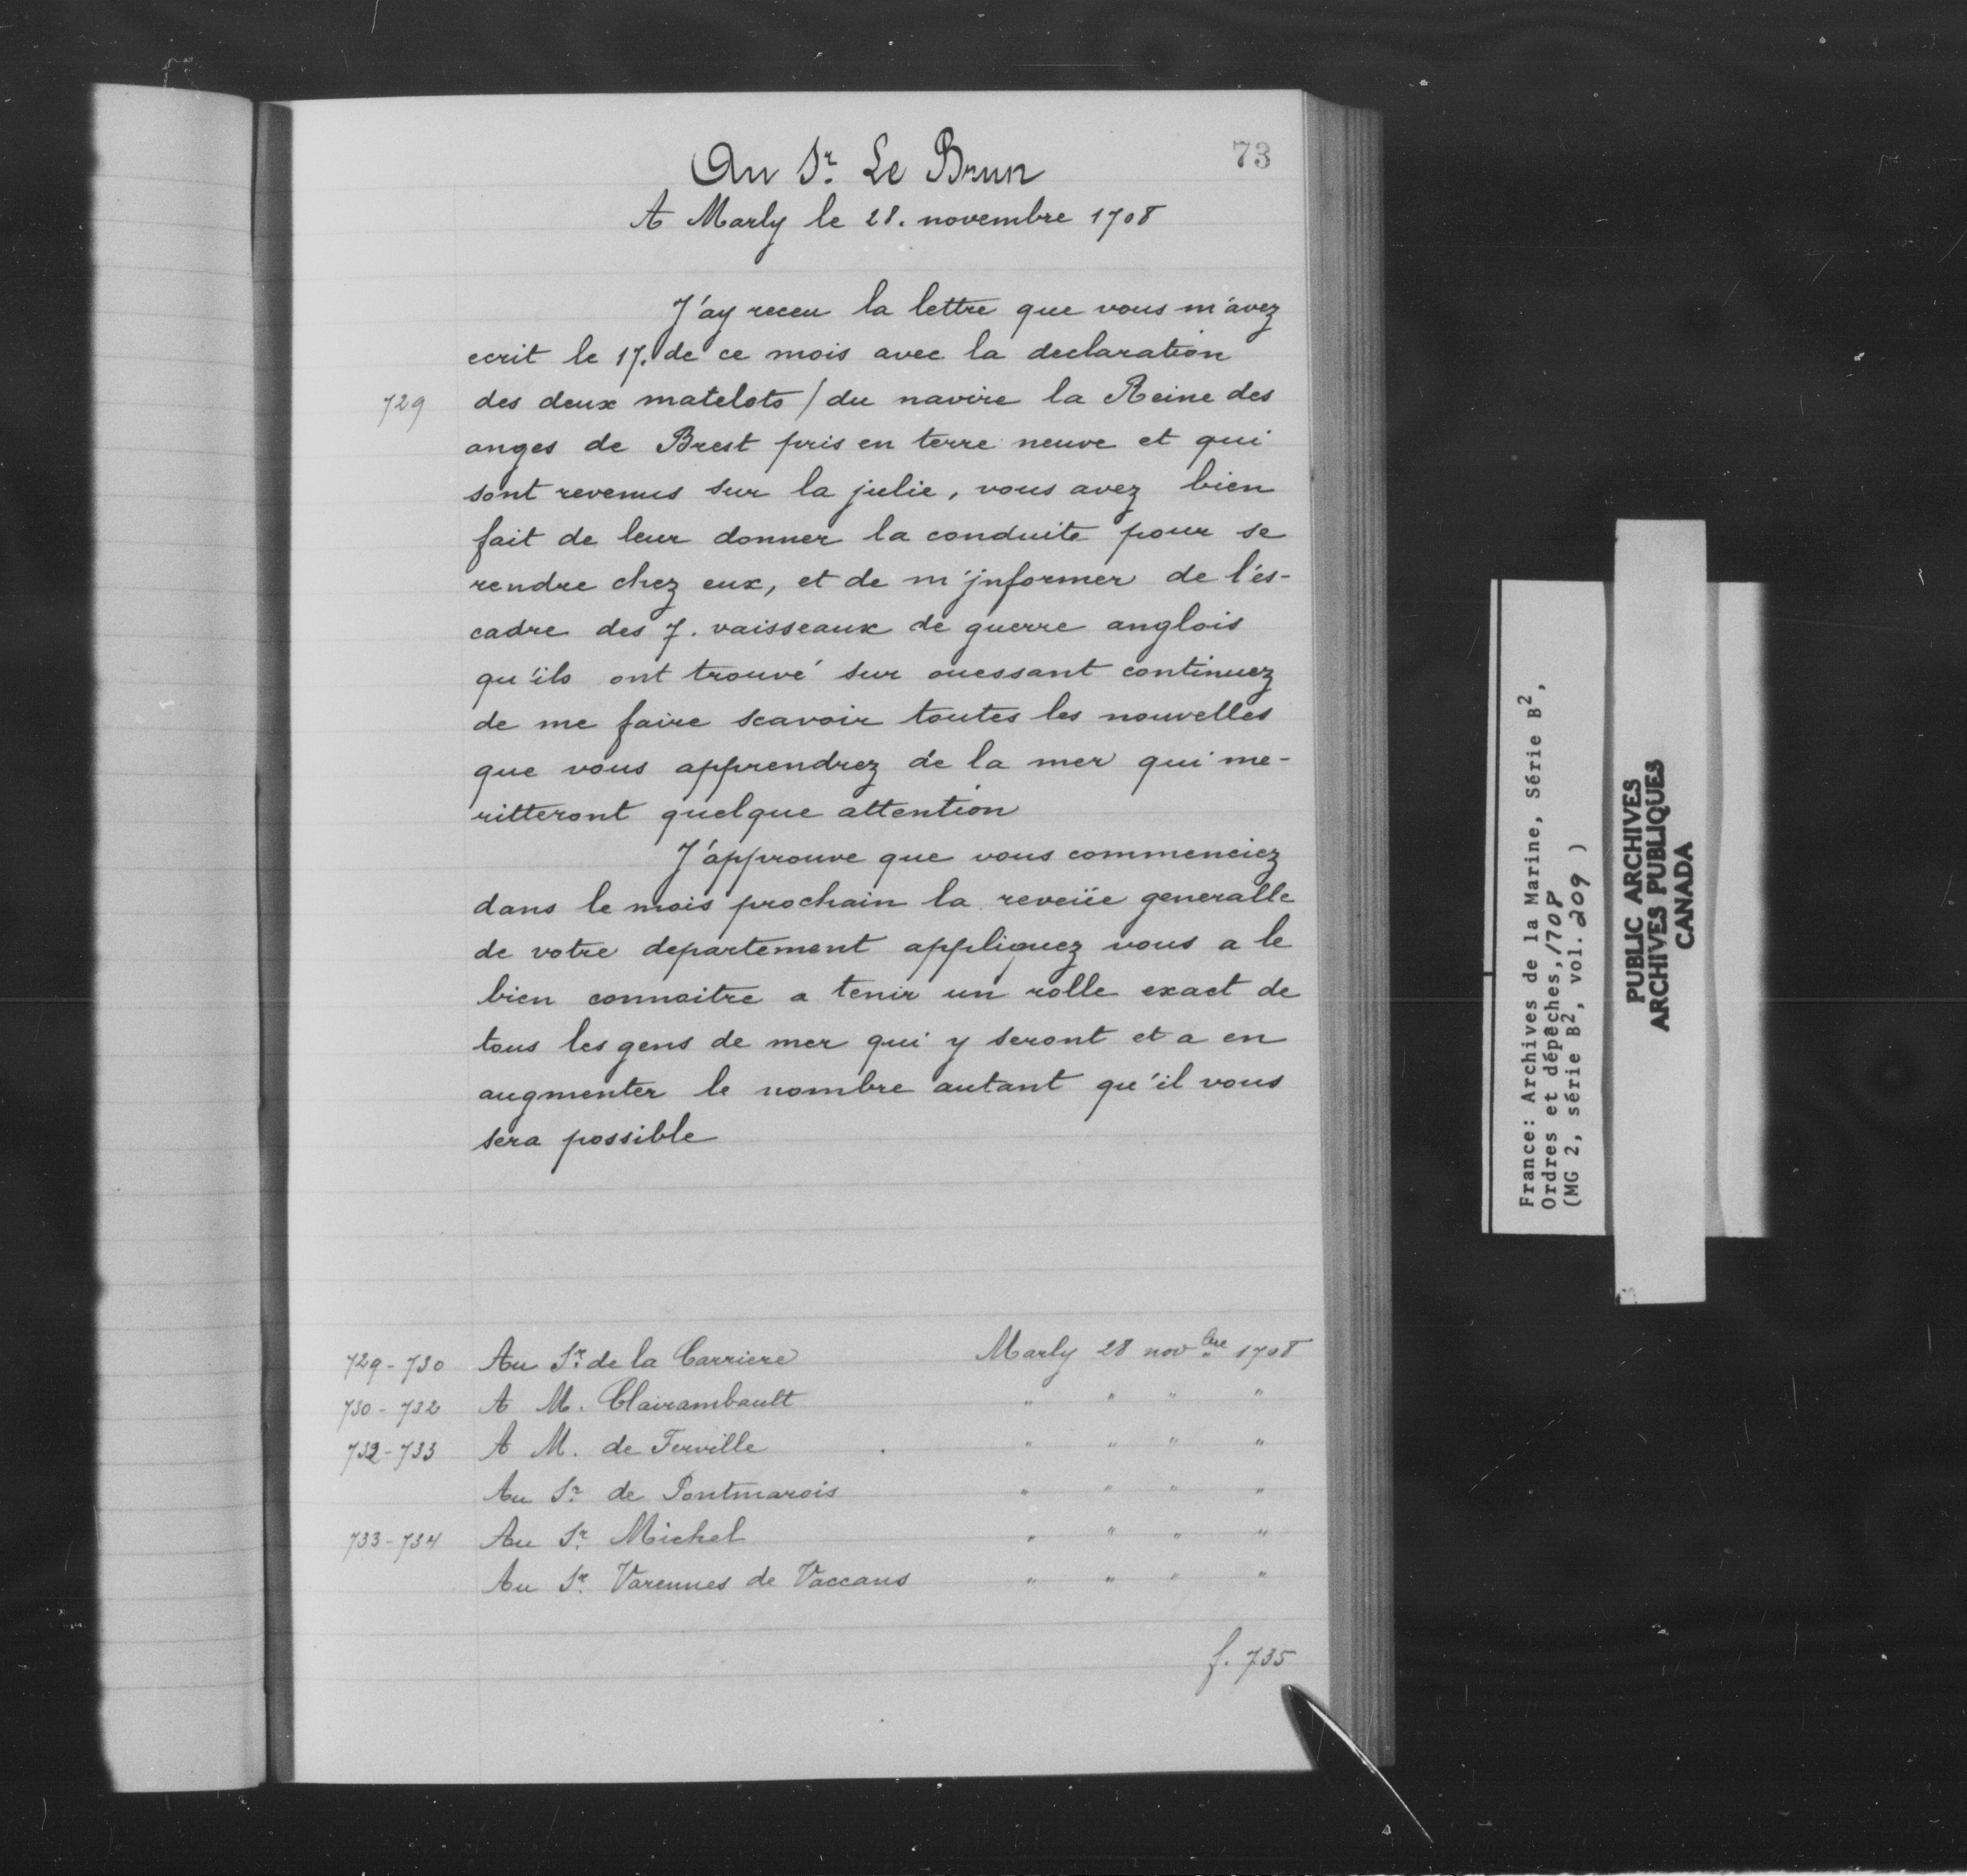 73
Au Sr. Le Brun
A Marly le 28. novembre 1708
J'ay receu la lettre que vous m'avez
ecrit le 17. de ce mois avec la declaration
729 des deux matelots / du navire la Reine des
anges de Brest pris en terre neuve et qui
sont revenus sur la julie, vous avez bien
fait de leur donner la conduite pour se
rendre chez eux, et de m'jnformer de l'es-
cadre des 7. vaisseaux de guerre anglois
qu'ils ont trouvé sur ouessant continuez
de me faire scavoir toutes les nouvelles
que vous apprendrez de la mer qui me-
ritteront quelque attention
J'approuve que vous commenciez
dans le mois prochain la reveüe generalle
de votre departement appliquez vous a le
bien connaitre a tenir un rolle exact de
tous les gens de mer qui y seront et a en
augmenter le nombre autant qu'il vous
sera possible
729-730 Au Sr. de la Carriere Marly 28 novbre 1708
730-732 A M. Clairambault " " " "
732-733 A M. de Terville " " " "
Au Sr. de Pontmarois " " " "
733-734 Au Sr. Michel " " " "
Au Sr. Varennes de Vaccans " " " "
f. 735
France: Archives de la Marine, Série B2,
Ordres et dépêches, 1708
(MG 2, série B2, vol. 209 )
PUBLIC ARCHIVES
ARCHIVES PUBLIQUES
CANADA